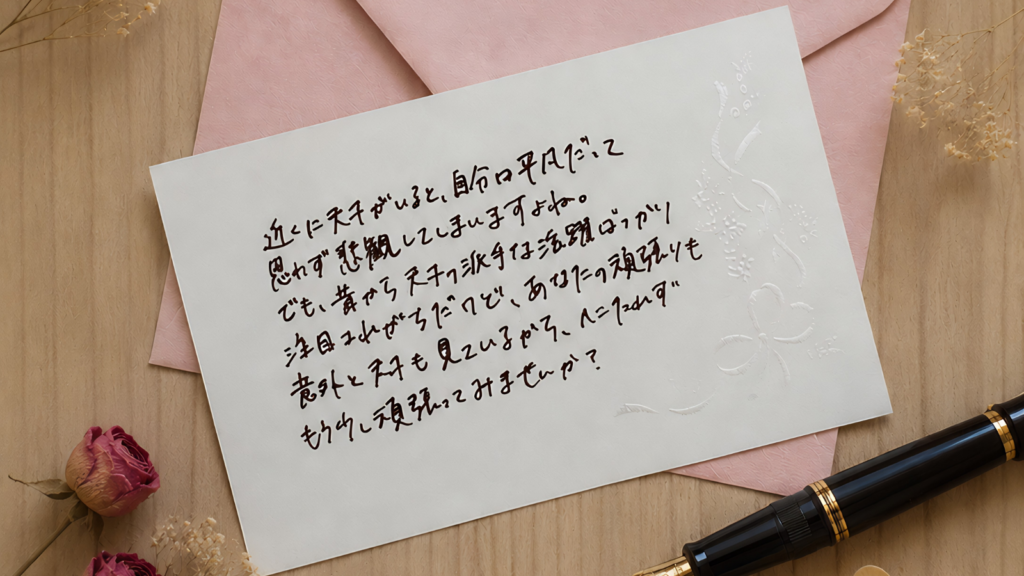 近くに天才がいると、自分は平凡だって
思わず悲観してしまいますよね。
でも、昔から天才の派手な活躍ばっかり
注目されがちだけど、あなたの頑張りも
意外と天才も見ているから、へこたれず
もう少し頑張ってみませんか？